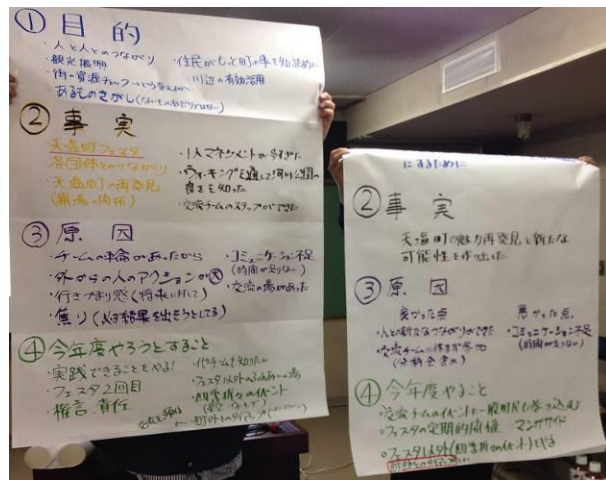 ① 目的
・人と人とのつながり
・観光振興
・住民がもっと町の事を知るために
・川辺の有効活用
あるものさがし(ないものねだりではなく)
② 事実
天塩町フェスタ
各団体とのつながり
・天塩町の再発見
・1人マネジメントが多すぎた
・ウォーキングを通して河川公園の
良さを知った
・交流チームのステップができた
③ 原因
・チームの革命があったから
・外からの人のアクションが
・行きづまり感(将来に対して)
・焦り(必ず結果を出そうとしてる)
・コミュニケーション不足
(時間が足りない)
・交流の場があった
④ 今年度やろうとすること
・実践できることをやる!
・フェスタ2回目
・権言、責任
・他チームも知りたい
・フェスタ以外のふれあいの場
・四季折々のイベント
・町外とのタイアップ
にするために
② 事実
天塩町の魅力再発見と新たな
可能性を作り出した
③ 原因
良かった点
・人との新たなつながりができた
・交流チームに
悪かった点
・コミュニケーション不足
(時間が足りない)
④ 今年度やること
・交流チームのイベントに一般町民も巻き込む
○フェスタの定期的開催
○フェスタ以外(四季折々のイベント)をやる